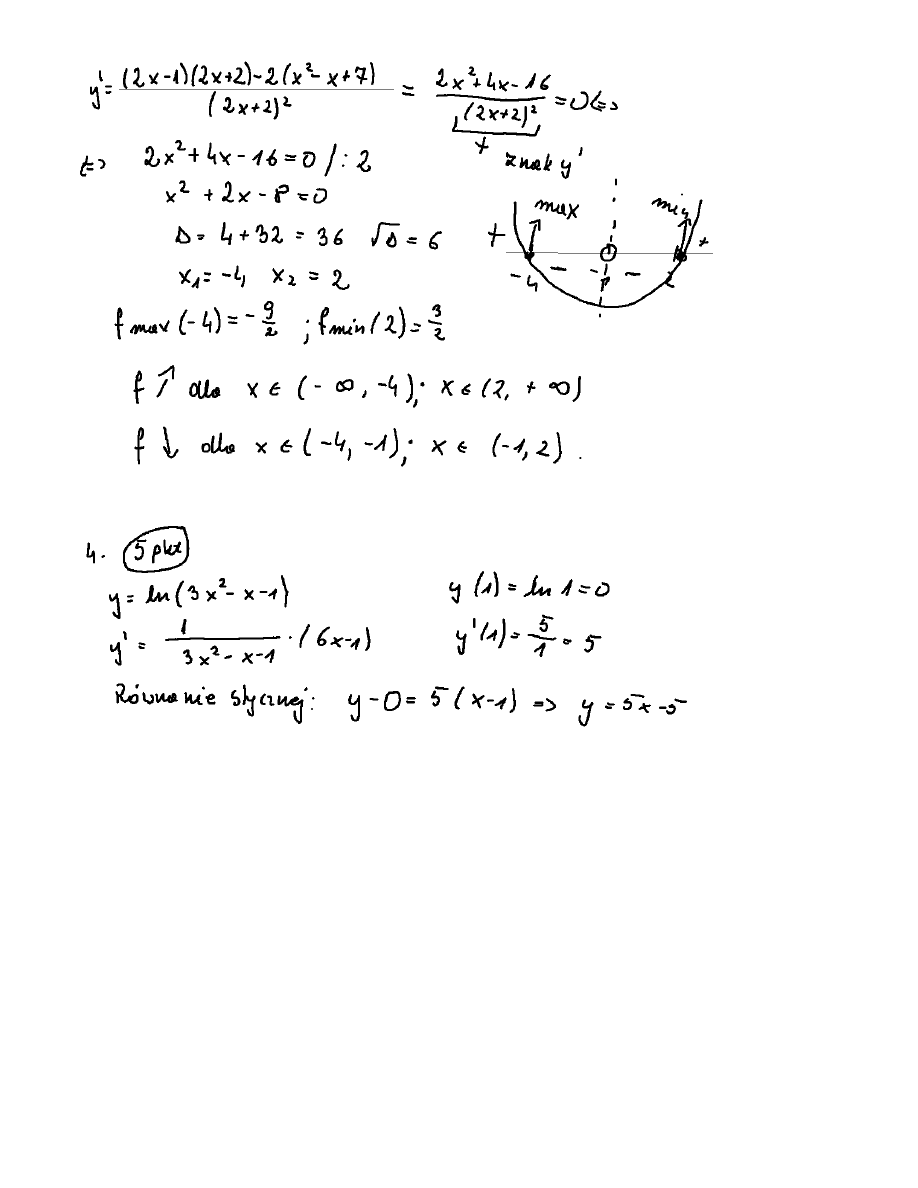 y' = \frac{(2x-1)(2x+2)-2(x²-x+7)}{(2x+2)²} = \frac{2x²+4x-16}{(2x+2)²} = 0 <=>
+
<=> 2x²+4x-16=0 /:2
znak y'
x²+2x-8=0
max min
Δ = 4+32 = 36 √Δ = 6
+ - - +
x₁=-4, x₂ = 2
-4 -1 2
f max (-4) = -\frac{9}{2} ; f min (2) = \frac{3}{2}
f ↗ dla x ∈ (-∞, -4); x ∈ (2, +∞)
f ↓ dla x ∈ (-4, -1); x ∈ (-1, 2).
4. 5 pkt
y = ln(3x²-x-1) y(1) = ln 1 = 0
y' = \frac{1}{3x²-x-1} · (6x-1) y'(1) = \frac{5}{1} = 5
Równanie stycznej: y-0 = 5(x-1) => y = 5x-5